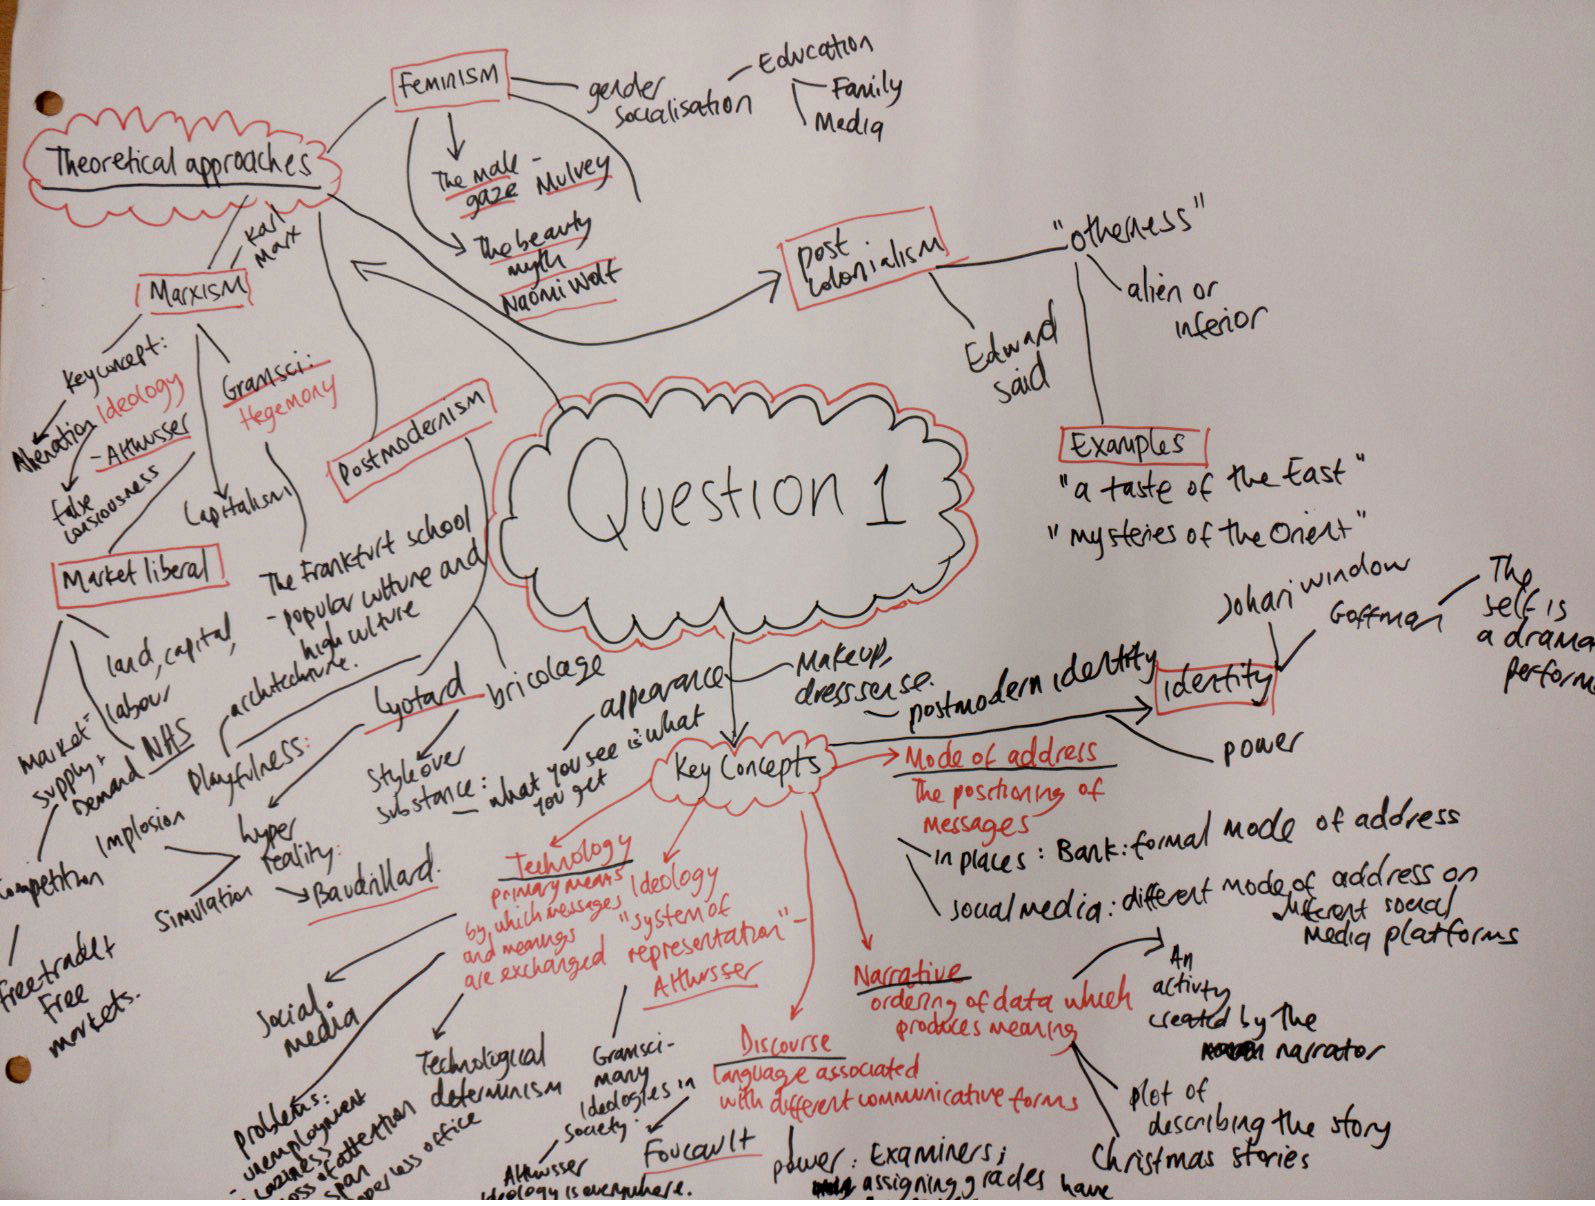 Theoretical approaches
Feminism
gender
socialisation
Education
Family
Media
The male -
gaze
Mulvey
The beauty
myth
Naomi Wolf
Karl
Marx
Marxism
Key concept:
Alienation
Ideology
- Althusser
false
consiousness
Gramsci:
Hegemony
Capitalism
The Frankfurt school
- popular culture and
high culture
Market liberal
land, capital,
labour
NHS
market -
supply +
Demand
competition
free trade +
free
markets.
post
colonialism
"otherness"
alien or
inferior
Edward
said
Examples
"a taste of the East"
"mysteries of the Orient"
Postmodernism
bricolage
Lyotard
Playfulness:
Style over
substance:
- what you see is what
you get
appearance
Makeup,
dress sense.
hyper
reality:
Baudrillard.
Implosion
Simulation
Question 1
Key Concepts
Identity
- postmodern identity
Johari window
Goffman
The
self is
a drama
perform
power
Mode of address
The positioning of
messages
in places: Bank: formal mode of address
social media: different mode of address on
different social
media platforms
Technology
primary means
by which messages
and meanings
are exchanged
Social
media
Technological
determinism
problems:
- unemployment
- laziness
loss of attention
span
paperless office
Ideology
"system of
representation" -
Althusser
Gramsci -
many
Ideologies in
society.
Althusser
Ideology is everywhere.
Discourse
language associated
with different communicative forms
Foucault
power: Examiners;
assigning grades have
Narrative
ordering of data which
produces meaning
An
activity
created by the
narrator
plot of
describing the story
Christmas stories